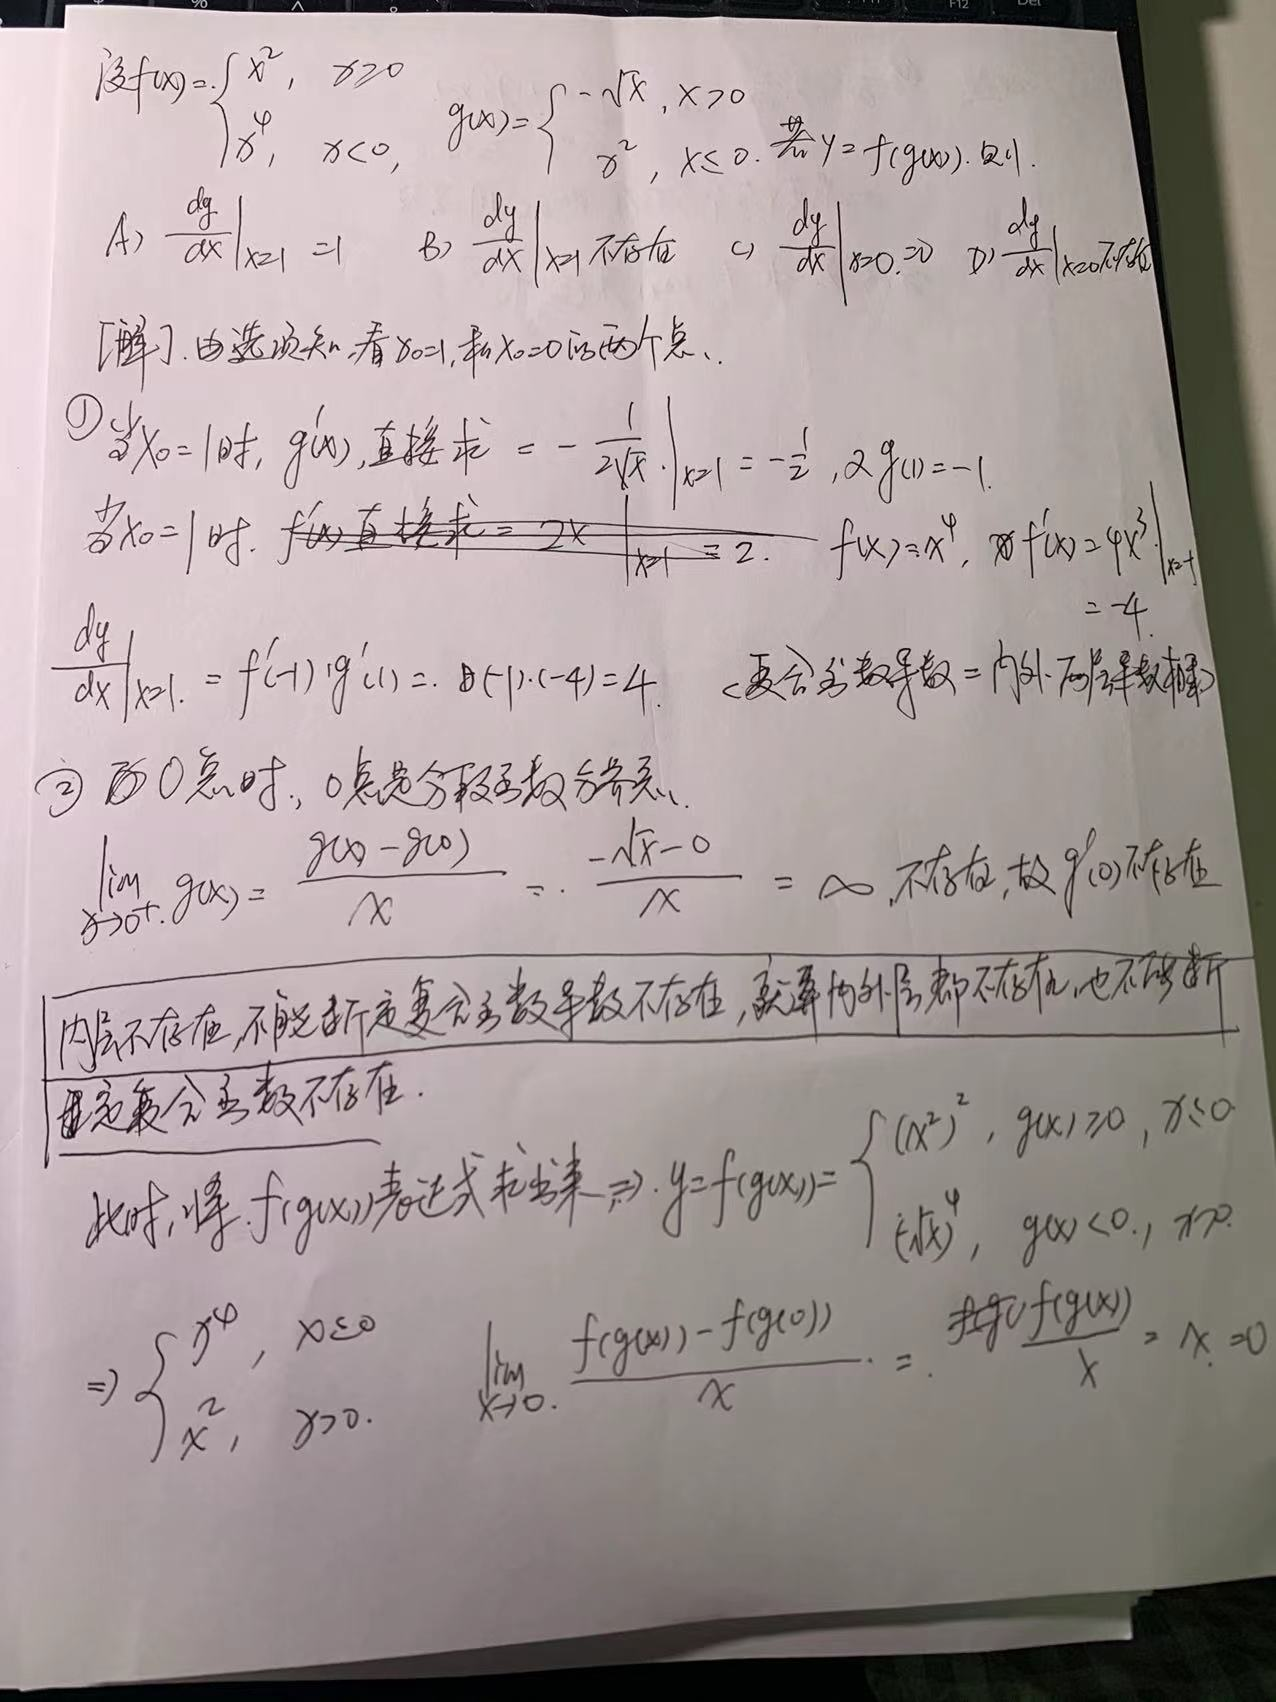 设f(x)={x², x≥0
x⁴, x<0, g(x)={-√x, x>0
x², x≤0. 若y=f(g(x)).则.
A) dy/dx|x=1 =1 B) dy/dx|x=1 不存在 C) dy/dx|x=0.=0 D) dy/dx|x=0不存在
[解].由选项知,看x₀=1,和x₀=0的两个点.
① 当x₀=1时, g'(x),直接求 = -1/2√x.|x=1 = -1/2, 又g(1)=-1.
当x₀=1时. f'(x)直接求=2x|x=1=2. f(x)=x⁴, f'(x)=4x³.|x=-1
=-4.
dy/dx|x=1. = f'(-1)·g'(1)=.(-1)·(-4)=4. <复合函数导数=内外两层导数相乘>
② 0点时, 0点是分段函数分界点.
lim x→0⁺. g(x)= g(x)-g(0)/x =. -√x-0/x = ∞,不存在,故g'(0)不存在
内层不存在,不能断定复合函数导数不存在,就算内外层都不存在,也不能断
定复合函数不存在.
此时,将f(g(x))表达式求出来⇒. y=f(g(x))={(x²)², g(x)≥0, x≤0
(-√x)⁴, g(x)<0., x>0.
⇒{x⁴, x≤0
x², x>0. lim x→0. f(g(x))-f(g(0))/x. =. f(g(x))/x = x.=0